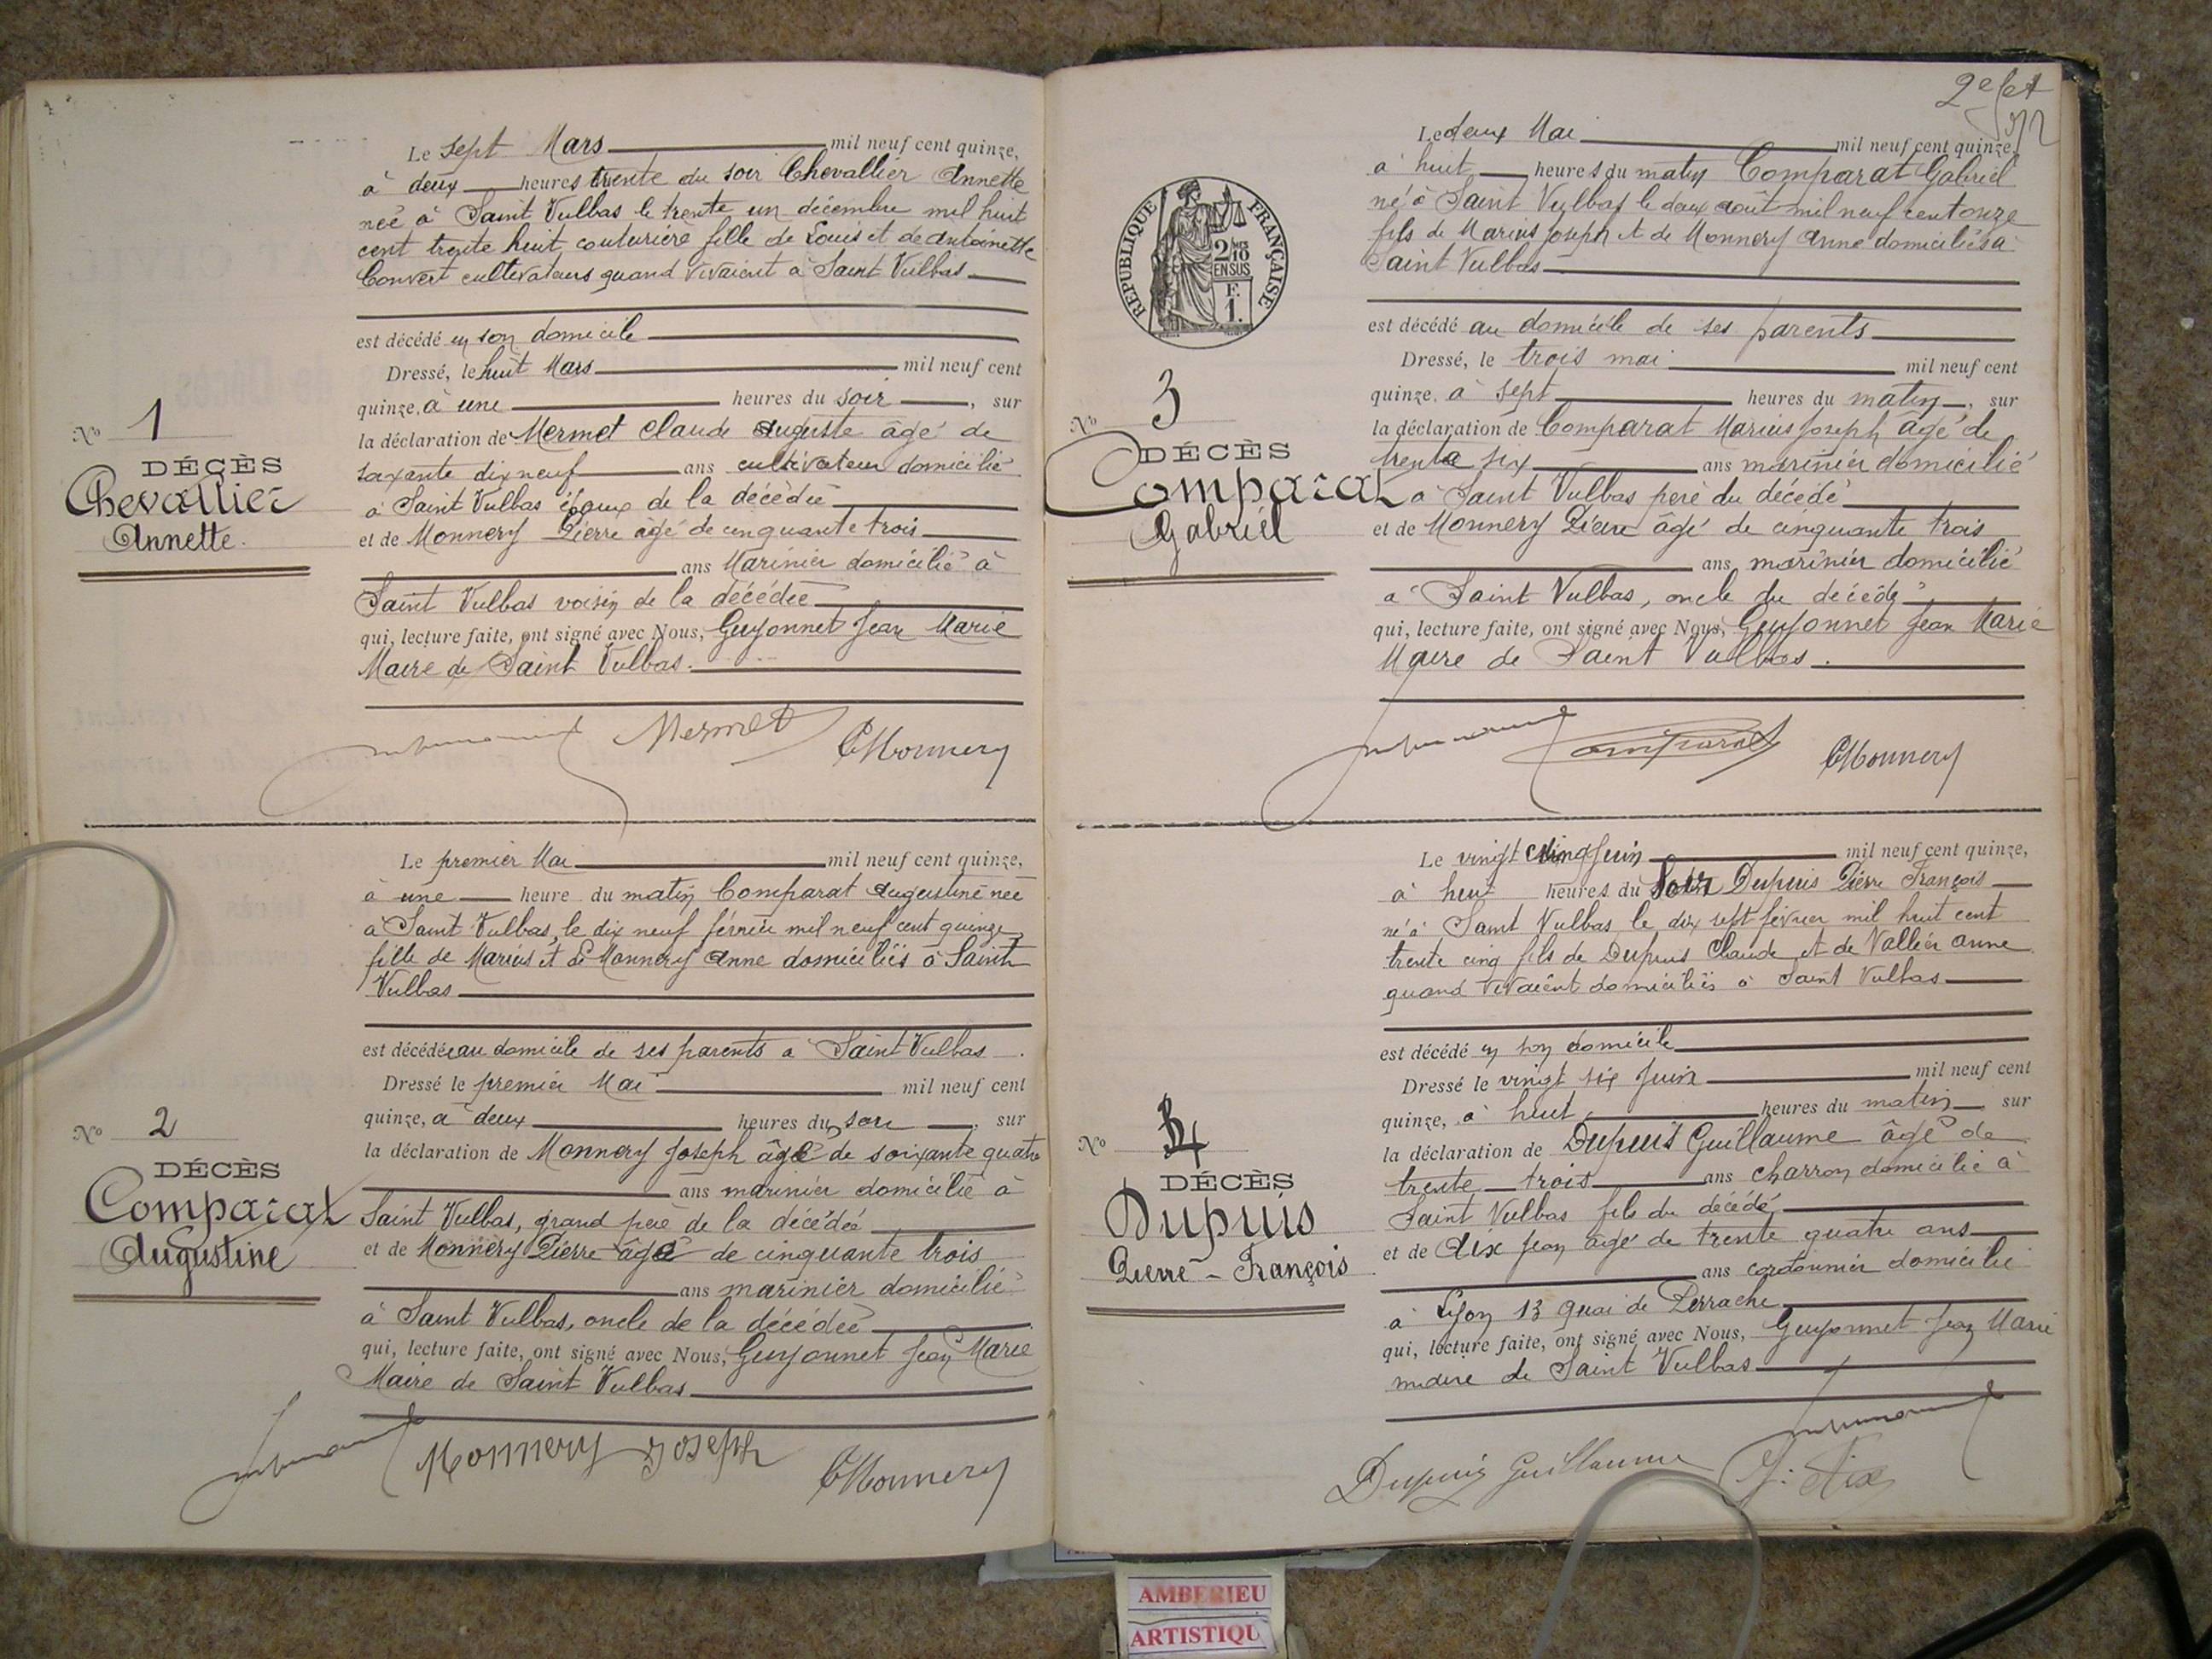 Le sept Mars mil neuf cent quinze,
à deux heures trente du soir Chevallier Annette
née à Saint Vulbas le trente un décembre mil huit
cent trente huit couturière fille de Louis et de Antoinette
Convert cultivateurs quand vivaient à Saint Vulbas
est décédé en son domicile
Dressé, le huit Mars mil neuf cent
quinze, à une heures du soir, sur
la déclaration de Mermet Claude Auguste âgé de
soixante dix neuf ans cultivateur domicilié
à Saint Vulbas époux de la décédée
et de Monnery Pierre âgé de cinquante trois
ans Marinier domicilié à
Saint Vulbas voisin de la décédée
qui, lecture faite, ont signé avec Nous, Guyonnet Jean Marie
Maire de Saint Vulbas.
Mermet
Monnery
No 1
DÉCÈS
Chevallier
Annette.
Le premier Mai mil neuf cent quinze,
à une heure du matin Comparat Augustine née
à Saint Vulbas, le dix neuf février mil neuf cent quinze,
fille de Marius et de Monnery Anne domiciliés à Saint
Vulbas
est décédée au domicile de ses parents à Saint Vulbas.
Dressé le premier Mai mil neuf cent
quinze, à deux heures du soir, sur
la déclaration de Monnery Joseph âgé de soixante quatre
ans marinier domicilié à
Saint Vulbas, grand père de la décédée
et de Monnery Pierre âgé de cinquante trois
ans marinier domicilié
à Saint Vulbas, oncle de la décédée
qui, lecture faite, ont signé avec Nous, Guyonnet Jean Marie
Maire de Saint Vulbas
Monnery Joseph
Monnery
No 2
DÉCÈS
Comparat
Augustine
2e fet
Le deux Mai mil neuf cent quinze,
à huit heures du matin Comparat Gabriel
né à Saint Vulbas le deux août mil neuf cent onze
fils de Marius Joseph et de Monnery Anne domiciliés à
Saint Vulbas
est décédé au domicile de ses parents
Dressé, le trois mai mil neuf cent
quinze, à sept heures du matin, sur
la déclaration de Comparat Marius Joseph âgé de
trente six ans marinier domicilié
à Saint Vulbas père du décédé
et de Monnery Pierre âgé de cinquante trois
ans marinier domicilié
à Saint Vulbas, oncle du décédé
qui, lecture faite, ont signé avec Nous, Guyonnet Jean Marie
Maire de Saint Vulbas.
Comparat
Monnery
RÉPUBLIQUE FRANÇAISE
2/10
EN SUS
F.
1.
No 3
DÉCÈS
Comparat
Gabriel
Le vingt cinq Juin mil neuf cent quinze,
à huit heures du Soir Dupuis Pierre François
né à Saint Vulbas le dix sept février mil huit cent
trente cinq fils de Dupuis Claude et de Vallier Anne
quand vivaient domiciliés à Saint Vulbas
est décédé en son domicile
Dressé le vingt six Juin mil neuf cent
quinze, à huit heures du matin, sur
la déclaration de Dupuis Guillaume âgé de
trente trois ans charron domicilié à
Saint Vulbas fils du décédé
et de Aix Jean âgé de trente quatre ans
ans cordonnier domicilié
à Lyon 13 quai de Perrache
qui, lecture faite, ont signé avec Nous, Guyonnet Jean Marie
maire de Saint Vulbas
Dupuis Guillaume J. Aix
No 4
DÉCÈS
Dupuis
Pierre - François
AMBERIEU
ARTISTIQU